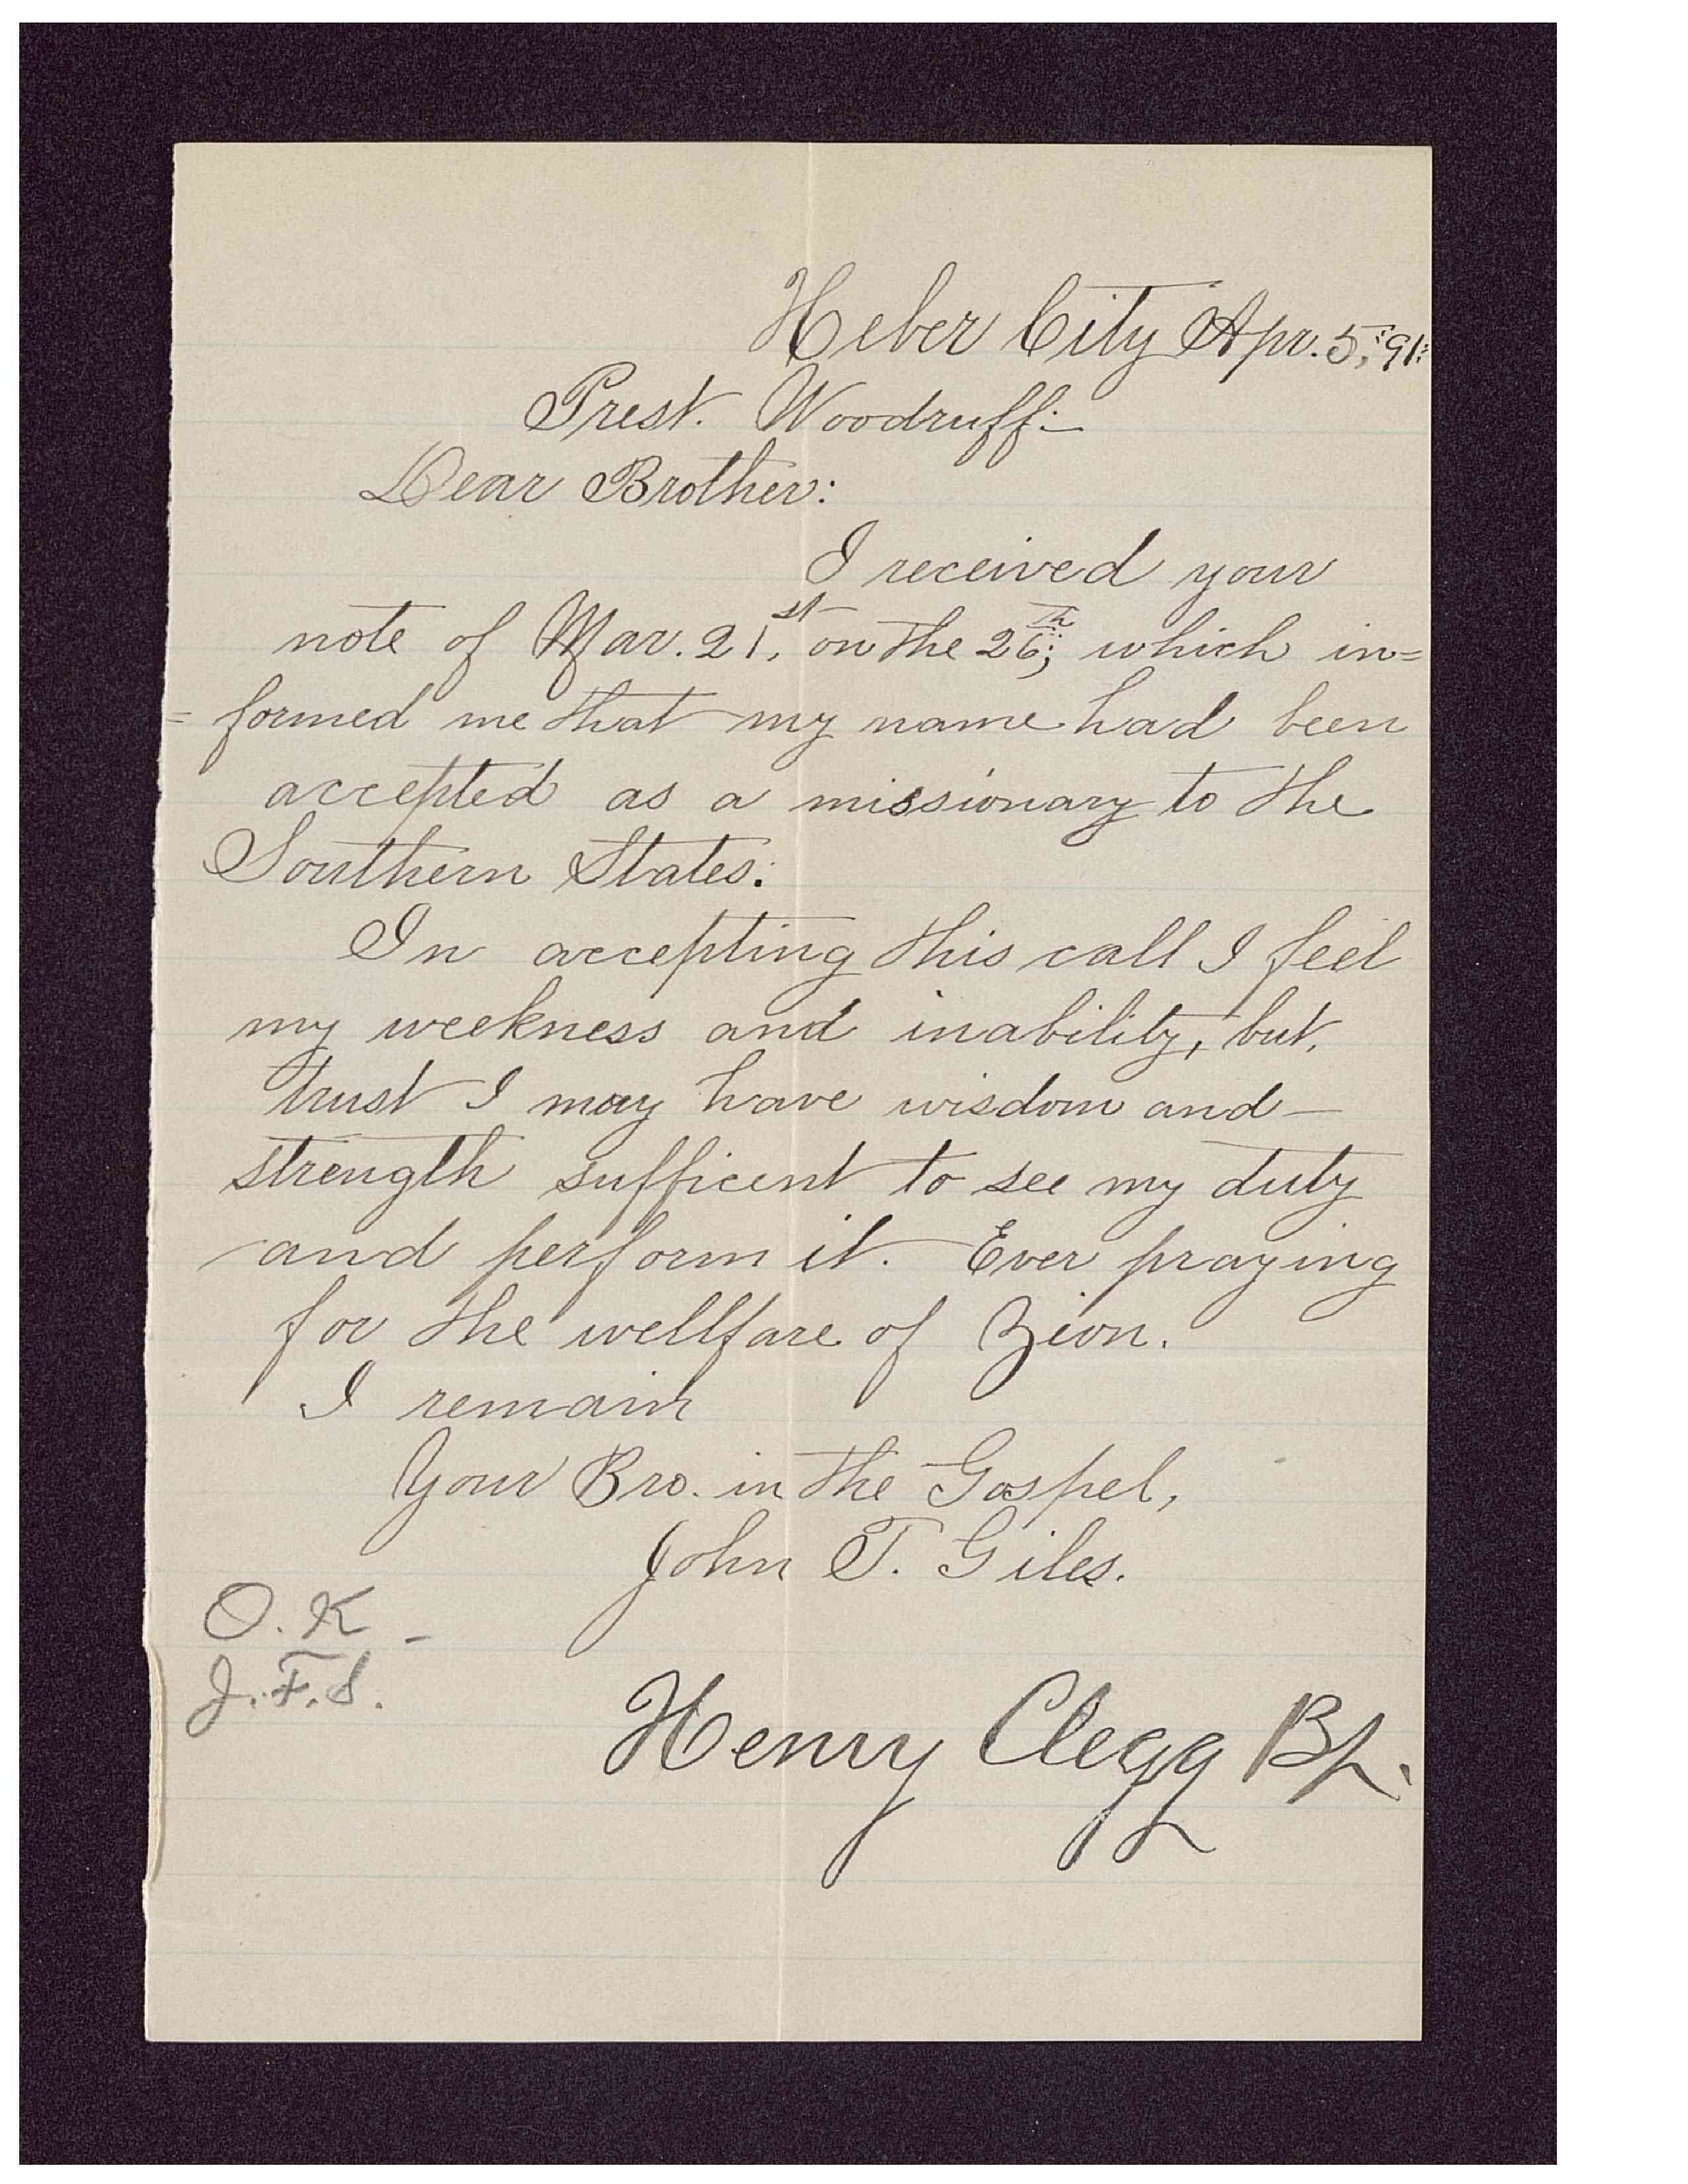 Heber City Apr. 5, '91.
Prest. Woodruff:-
Dear Brother:
I received your
note of Mar. 21st, on the 26th; which in=
=formed me that my name had been
accepted as a missionary to the
Southern States.
In accepting this call I feel
my weekness and inability, but,
trust I may have wisdom and
strength sufficent to see my duty
and perform it. Ever praying
for the wellfare of Zion.
I remain
Your Bro. in the Gospel,
John T. Giles.
O.K -
J.F.S.
Henry Clegg Bp.